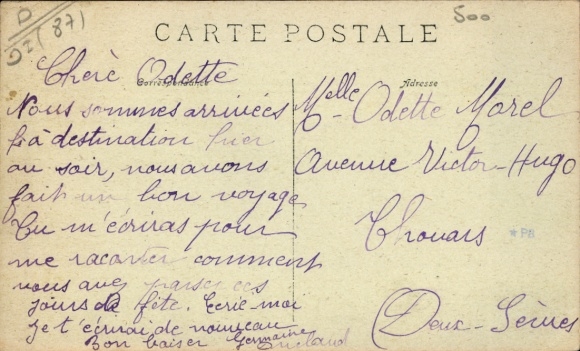 D
92 (87)
500
CARTE POSTALE
Correspondance
Adresse
Chère Odette
Nous sommes arrivées
à destination hier
au soir, nous avons
fait un bon voyage
Tu m'écriras pour
me raconter comment
vous avez passer ces
jours de fête. Ecrie moi
je t'écrirai de nouveau
Bon baiser Germaine
Melle Odette Morel
Avenue Victor-Hugo
Thouars
*PB
(Deux-Sèvres